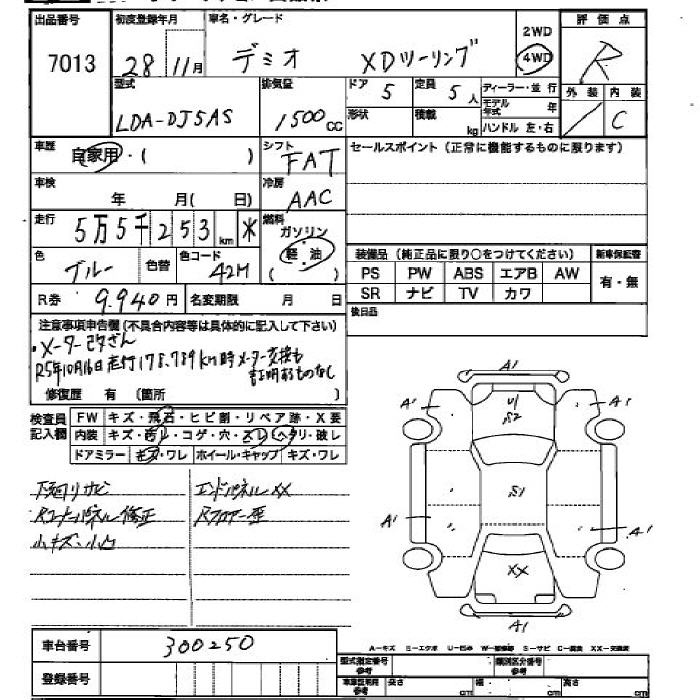 出品番号 初度登録年月 車名・グレード 2WD 評価点
7013 28 11月 デミオ XDツーリング 4WD R
型式 排気量 ドア 5 定員 5人 ディーラー・並行 外装 内装
LDA-DJ5AS 1500cc 形状 積載 kg モデル年式 年 / C
ハンドル 左・右
車歴 自家用・( ) シフト FAT セールスポイント(正常に機能するものに限ります)
車検 年 月( 日) 冷房 AAC
走行 5万5千253km * 燃料 ガソリン 軽・油 ( )
色 ブルー 色替 色コード 42M
装備品(純正品に限り○をつけてください) 新車保証書
PS PW ABS エアB AW 有・無
SR ナビ TV カワ
R券 9.940円 名変期限 月 日 後日品
注意事項申告欄(不具合内容等は具体的に記入して下さい)
・メーター改ざん
R5年10月16日走行178.789km時メーター交換も
証明するものなし
修復歴 有 (箇所 )
検査員記入欄 FW キズ・飛石・ヒビ割・リペア跡・X要
内装 キズ・汚レ・コゲ・穴・スレ・ヘタリ・破レ
ドアミラー キズ・ワレ ホイール・キャップ キズ・ワレ
下廻りサビ エンドパネルXX
Rコーナーパネル修正 Rフロアー歪
小キズ・小凹
A1
A1 U1 A1
S2
S1
A1 A1
XX
A1
A-キズ M-エクボ U-凹み W-補修跡 S-サビ C-腐食 XX-交換済
車台番号 300250
登録番号
型式指定番号 参考 類別区分番号 参考
車庫証明用 参考 長さ cm 幅 cm 高さ cm